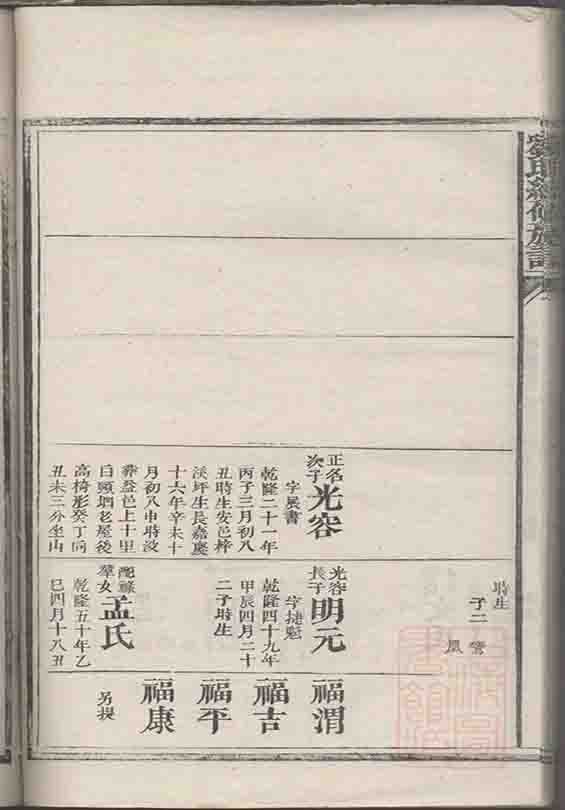 時生
子二
鸞
鳳
正名
次子
光容
字展書
乾隆二十一年
丙子三月初八
丑時生安邑梓
沃坪生長嘉慶
十六年辛未十
月初八申時歿
葬益邑上十里
白頭堌老屋後
高椅形癸丁向
丑未三分坐山
光容
長子
明元
字捷魁
乾隆四十九年
甲辰四月二十
二子時生
配祿
翠女
孟氏
乾隆五十年乙
巳四月十八丑
福渭
福吉
福平
福康
另提